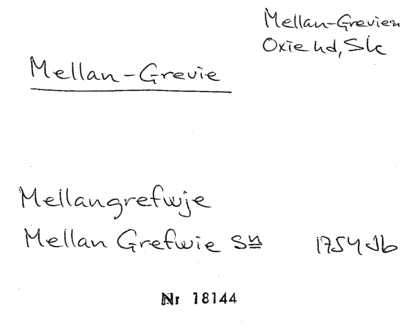 Mellan-Grevien
Oxie hd, Sk
Mellan-Grevie
Mellangrefwje
Mellan Grefwie sn 1754 Jb
Nr 18144